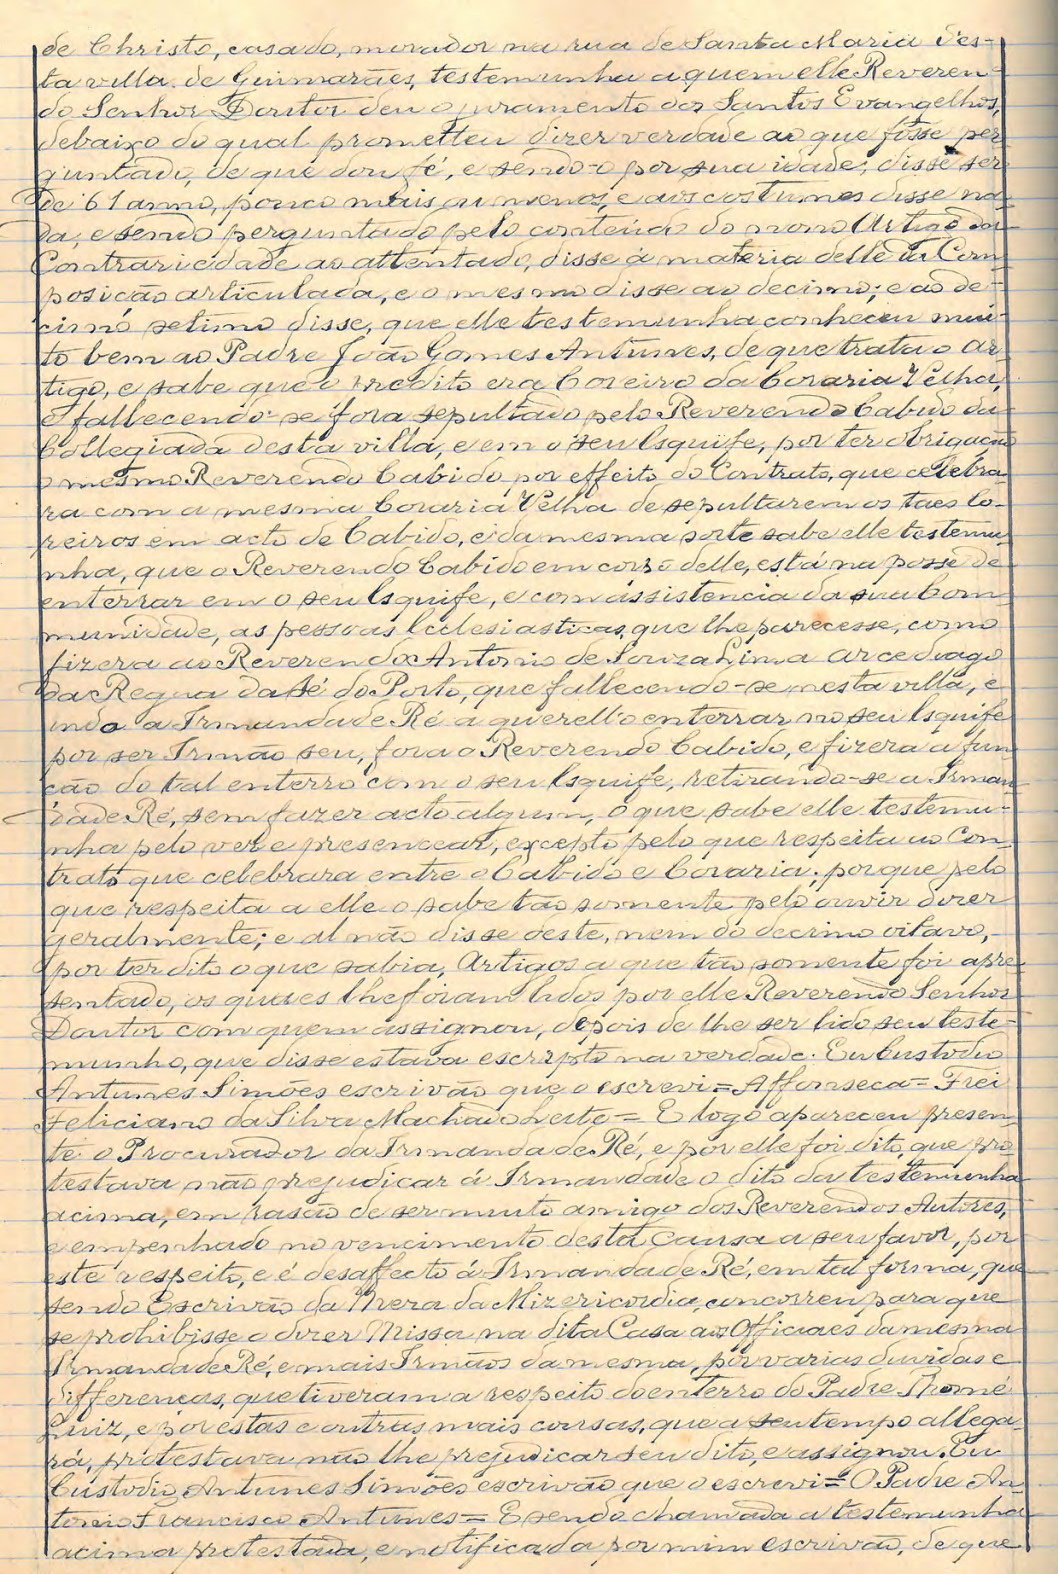 de Christo, casado, morador na rua de Santa Maria d'es-
ta villa de Guimarães, testemunha a quem elle Reveren-
do Senhor Doutor deu o juramento dos Santos Evangelhos,
debaixo do qual prometteu dizer verdade ao que fosse per
guntado, de que dou fé, e sendo-o por sua idade, disse ser
de 61 anno, pouco mais ou menos, e aos costumes disse na
da, e sendo perguntado pelo conteúdo do nono Artigo da
Contrariedade ao attentado, disse á materia delle da Com
posição articulada, e o mesmo disse ao decimo; e ao de-
cimo setimo disse, que elle testemunha conheceu mui-
to bem ao Padre João Gomes Antunes, de que trata o Ar
tigo, e sabe que o predito era Coreiro da Coraria Velha,
e fallecendo-se fora sepultado pelo Reverendo Cabido da
Collegiada desta villa, e em o seu Esquife, por ter obrigação
o mesmo Reverendo Cabido por effeito do Contrato, que celebra
ra com a mesma Coraria Velha de sepultarem os taes Co-
reiros em acto de Cabido, e da mesma sorte sabe elle testemu
nha, que o Reverendo Cabido em corpo delle, está na posse de
enterrar em o seu Esquife, e com assistencia da sua Com
munidade, as pessoas Ecclesiasticas, que lhe parecesse, como
fizera ao Reverendo Antonio de Souza Lima Arcediago
da Regua da Sé do Porto, que fallecendo-se nesta villa, e
indo a Irmandade Ré a querel-o enterrar no seu Esquife
por ser Irmão seu, fora o Reverendo Cabido, e fizera a fun
cão do tal enterro com o seu Esquife, retirando-se a Irman
dade Ré, sem fazer acto algum, o que sabe elle testemu-
nha pelo ver e presencear, excepto pelo que respeita ao Con
trato que celebrara entre o Cabido e Coraria; porque pelo
que respeita a elle o sabe tão somente pelo ouvir dizer
geralmente; e al não disse deste, nem do decimo oitavo,
por ter dito o que sabia, Artigos a que tão somente foi apre
sentado, os quaes lhe foram lidos por elle Reverendo Senhor
Doutor com quem assignou, depois de lhe ser lido seu teste-
munho, que disse estava escripto na verdade. Eu Custodio
Antunes Simões escrivão que o escrevi = Affonseca = Frei
Feliciano da Silva Machado Leite = E logo apareceu presen
te o Procurador da Irmandade Ré, e por elle foi dito, que pro
testava não prejudicar á Irmandade o dito da testemunha
acima, em rasão de ser muito amigo dos Reverendos Autores,
e empenhado no vencimento desta Causa a seu favor, por
este respeito, e é desaffecto á Irmandade Ré, em tal forma, que
sendo Escrivão da Meza da Mizericordia, concorreu para que
se prohibisse o dizer Missa na dita Casa aos Officiaes da mesma
Irmandade Ré, e mais Irmãos da mesma, por varias duvidas e
differenças, que tiveram a respeito do enterro do Padre Thomé
Luiz, e por estas e outras mais cousas, que a seu tempo allega
rá, protestava não lhe prejudicar seu dito, e assignou. Eu
Custodio Antunes Simões escrivão que o escrevi = O Padre An
tonio Francisco Antunes = E sendo chamada a testemunha
acima protestada, e notificada por mim escrivão, de que